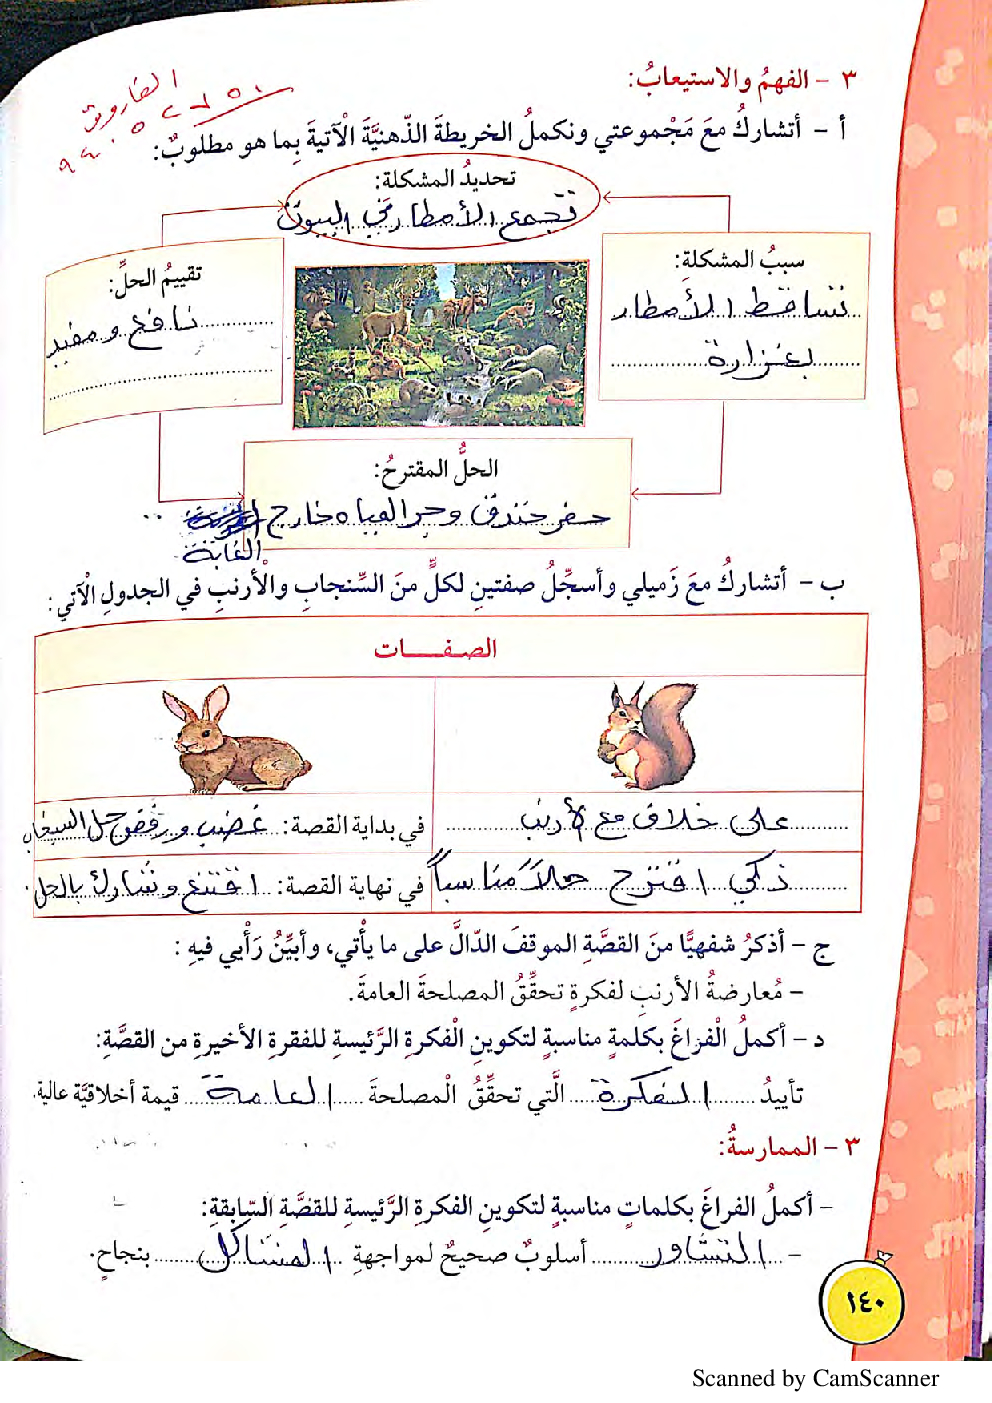 ٣ - الفهمُ والاستيعابُ:
الفاروق
أ - أتشاركُ معَ مَجْموعتي ونكملُ الخريطةَ الذهنيَّةَ الْآتيةَ بِما هو مطلوبٌ:
تحديدُ المشكلة:
تجمع الأمطار في البيوت
سببُ المشكلةِ:
تساقط الأمطار
بغزارة
تقييمُ الحلِّ:
نافع و مفيد
الحلُّ المقترحُ:
حفر خندق وجر المياه خارج
الغابة
ب - أتشاركُ معَ زَميلي وأسجِّلُ صفتينِ لكلٍّ منَ السِّنجابِ والْأرنبِ في الجدولِ الْآتي:
الصفـــات
على خلاف مع الأرنب
في بداية القصة: غضب ورفض حل السنجاب
ذكي اقترح حلاً مناسباً
في نهاية القصة: اقتنع وشارك بالحل.
ج - أذكرُ شفهيًّا منَ القصَّةِ الموقفَ الدّالَّ على ما يأتي، وأبيِّنُ رَأْيي فيهِ:
- مُعارضةُ الأرنبِ لفكرةٍ تحقِّقُ المصلحةَ العامةَ.
د - أكملُ الْفراغَ بكلمةٍ مناسبةٍ لتكوينِ الْفكرةِ الرَّئيسةِ للفقرةِ الأخيرةِ من القصَّةِ:
تأييدُ الفكرة الَّتي تحقِّقُ الْمصلحةَ العامة قيمة أخلاقيَّة عالية.
٣ - الممارسةُ:
- أكملُ الفراغَ بكلماتٍ مناسبةٍ لتكوينِ الفكرةِ الرَّئيسةِ للقصَّةِ السّابقةِ:
- التشاور أسلوبٌ صحيحٌ لمواجهةِ المشاكل بنجاحٍ.
١٤٠
Scanned by CamScanner